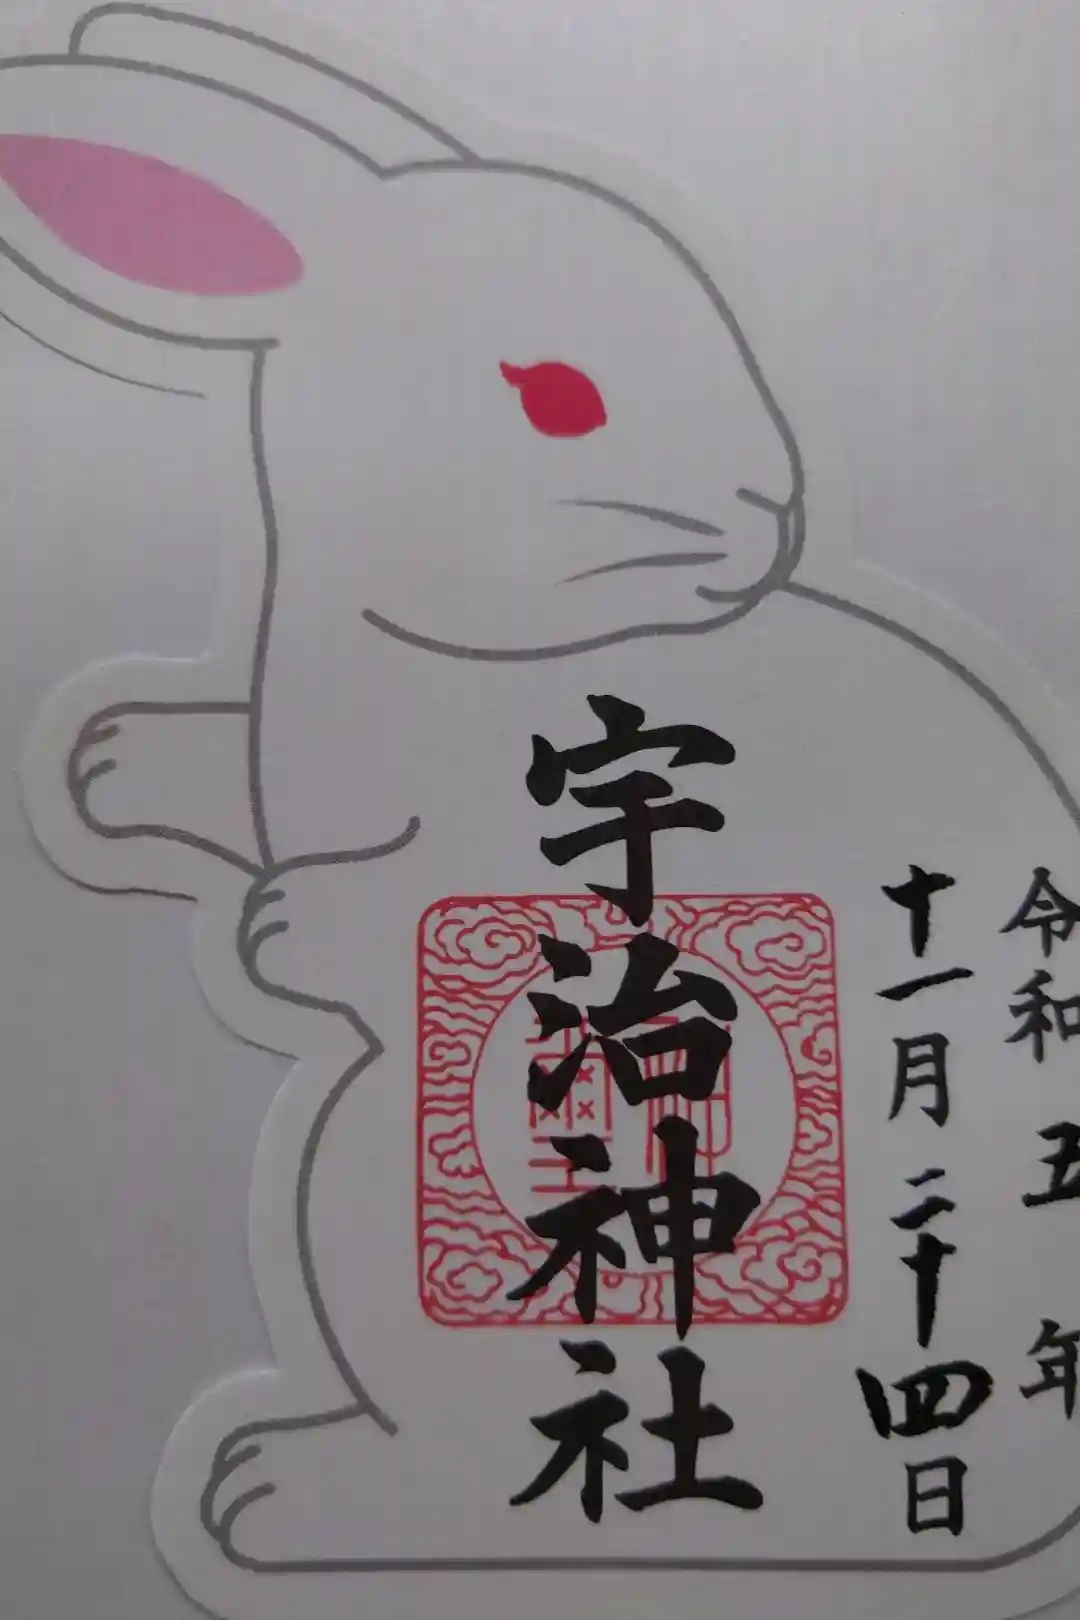 令和五年
十一月二十四日
宇治神社